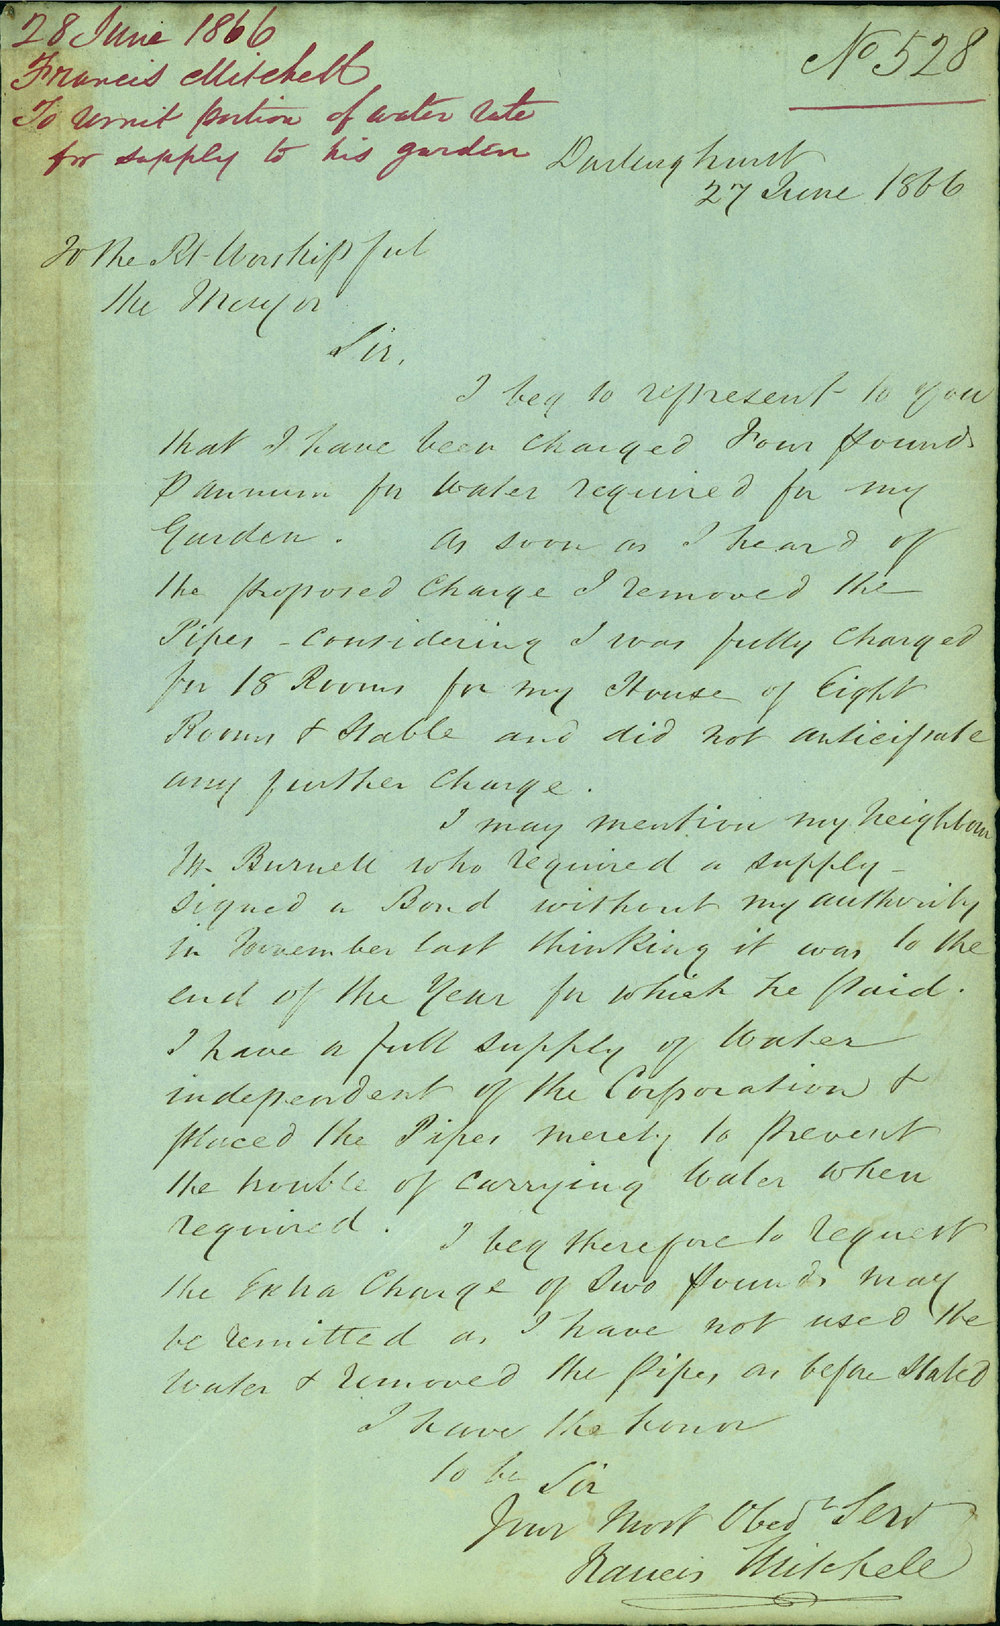 28 June 1866
Francis Mitchell
To remit portion of water rate
for supply to his garden
No 528
Darlinghurst
27 June 1866
To the Rt Worshipful
the Mayor
Sir,
I beg to represent to you
that I have been charged Four Pounds
P annum for water required for my
Garden. As soon as I heard of
the proposed charge I removed the
Pipes - considering I was fully charged
for 18 Rooms for my House of Eight
Rooms & Stable and did not anticipate
any further charge.
I may mention my neighbour
Mr Burnell who required a supply -
signed a Bond without my authority
in November last thinking it was to the
end of the Year for which he paid.
I have a full supply of Water
independent of the Corporation &
placed the Pipes merely to prevent
the trouble of carrying Water when
required. I beg therefore to request
the Extra Charge of Two Pounds may
be remitted as I have not used the
Water & removed the Pipes as before stated
I have the honor
to be Sir
Your Most Obedt Servt
Francis Mitchell